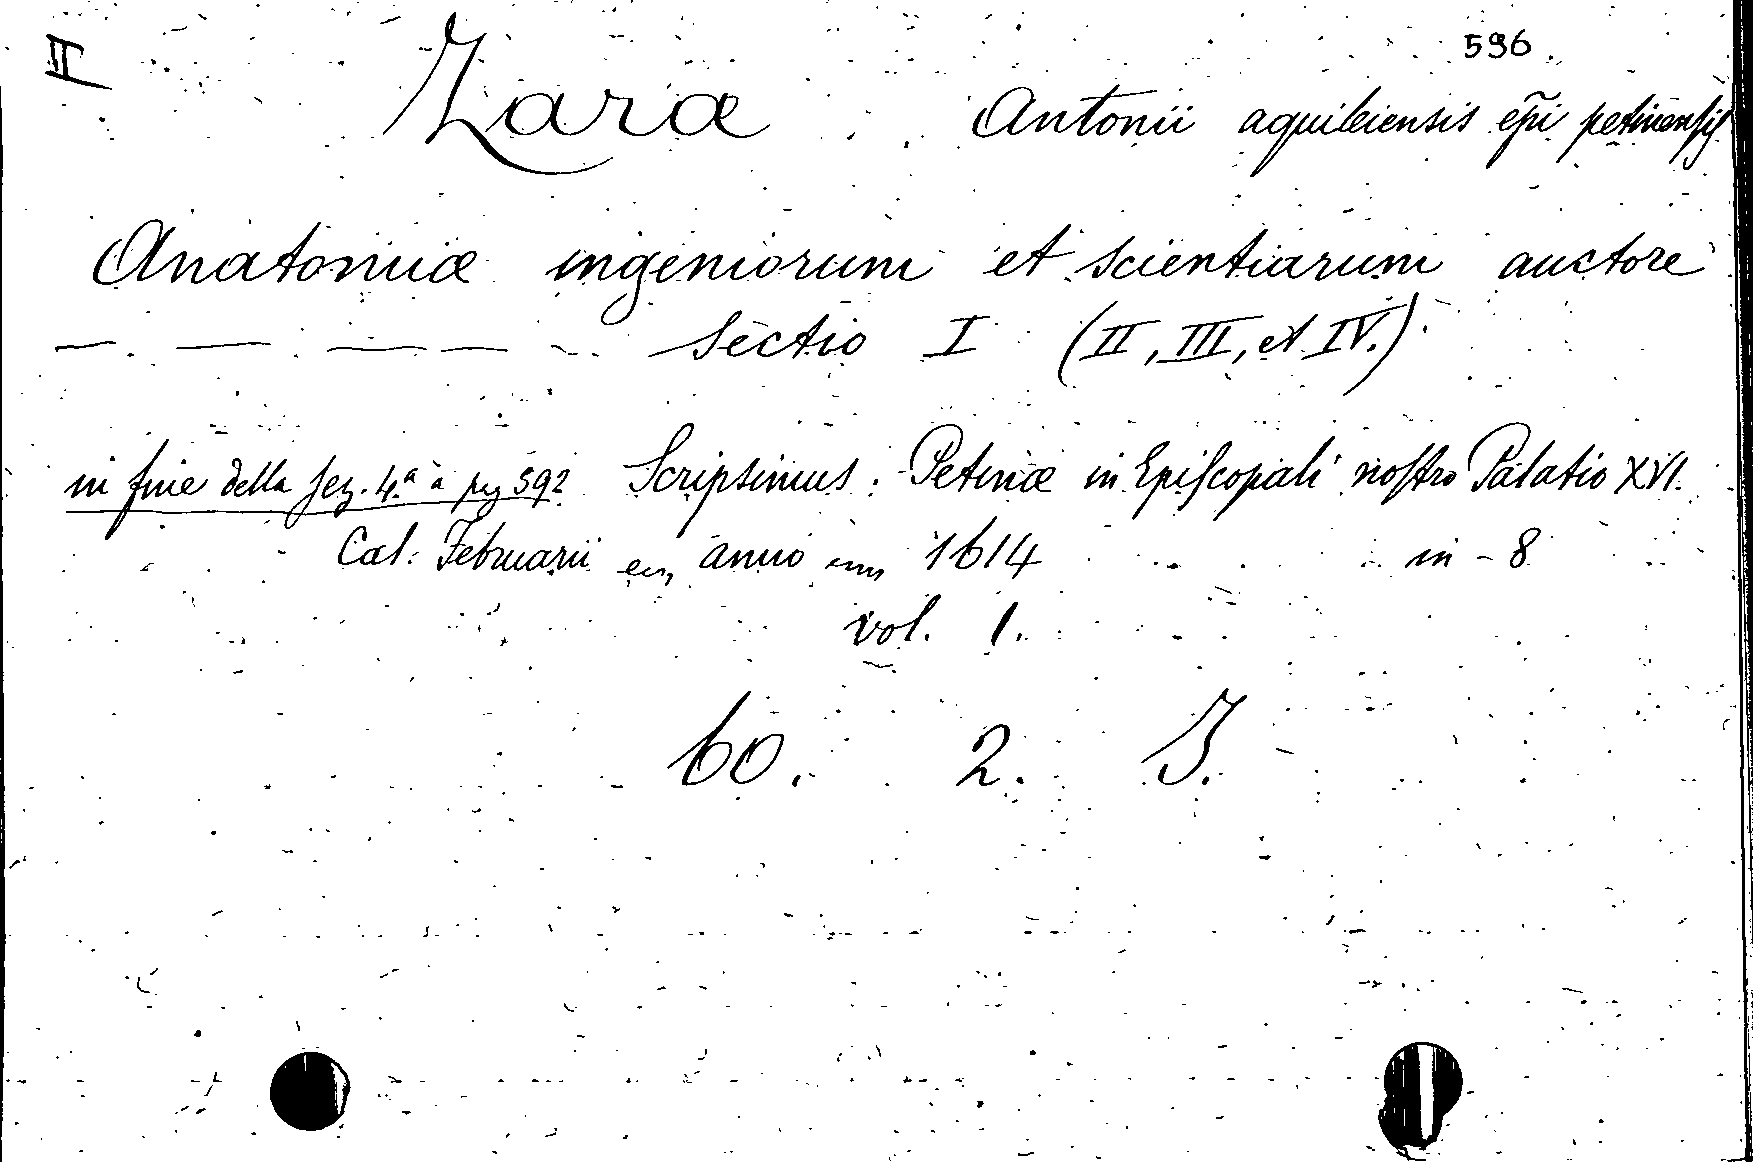 II
596
Zaræ Antonii aquileiensis epĩ petinensis
Anatomiæ ingeniorum et scientiarum auctore
— . — . — — - . — Sectio I (II, III, et IV.).
in fine della sez. 4.ª à pag 592 Scripsimus : Petinæ in Episcopali nostro Palatio XVI.
Cal: Februarii anno 1614 in - 8
vol. 1.
60. 2. J.